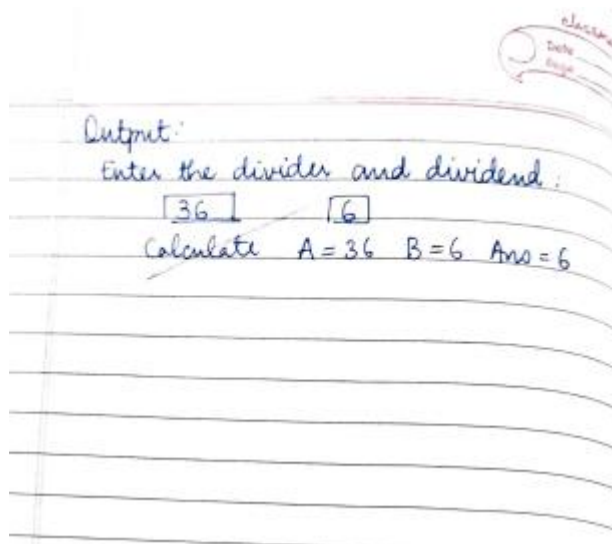 classma
Date
Page
Output:
Enter the divider and dividend:
36 6
Calculate A = 36 B = 6 Ans = 6